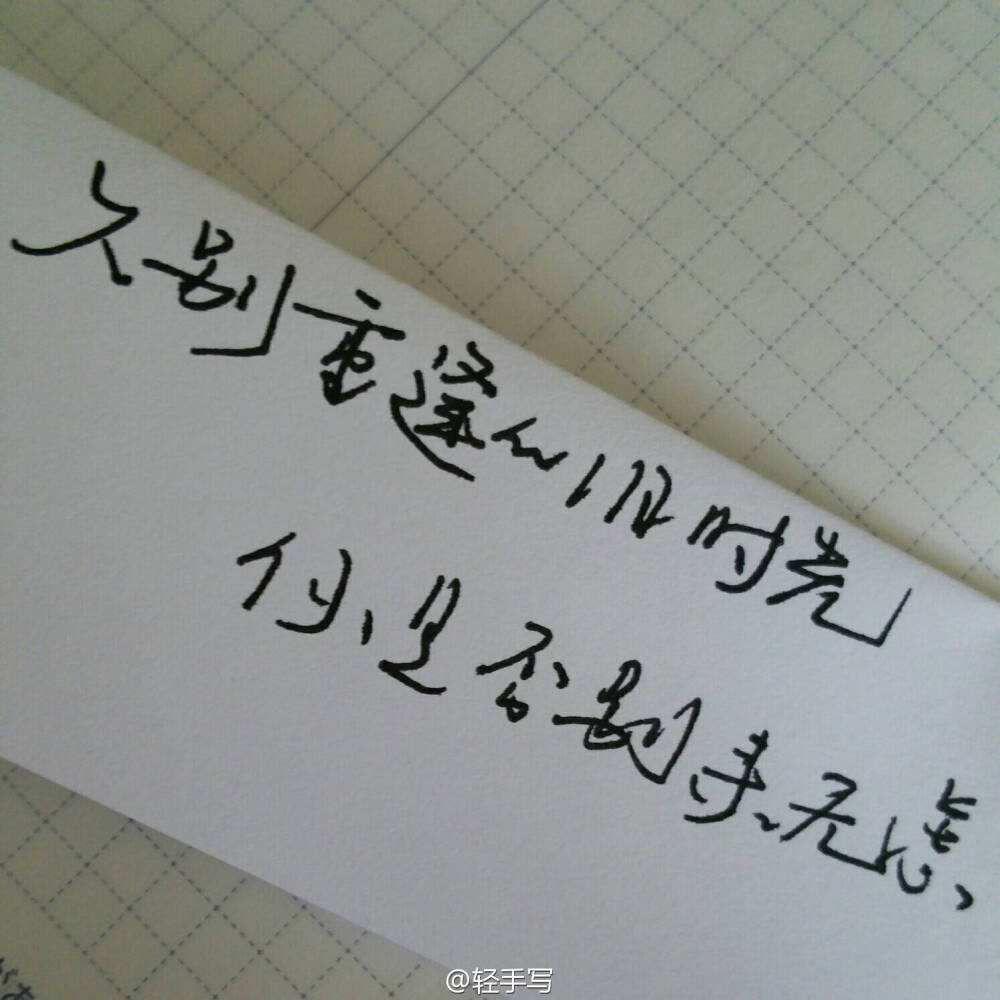 久别重逢的旧时光
你是否别来无恙
@轻手写